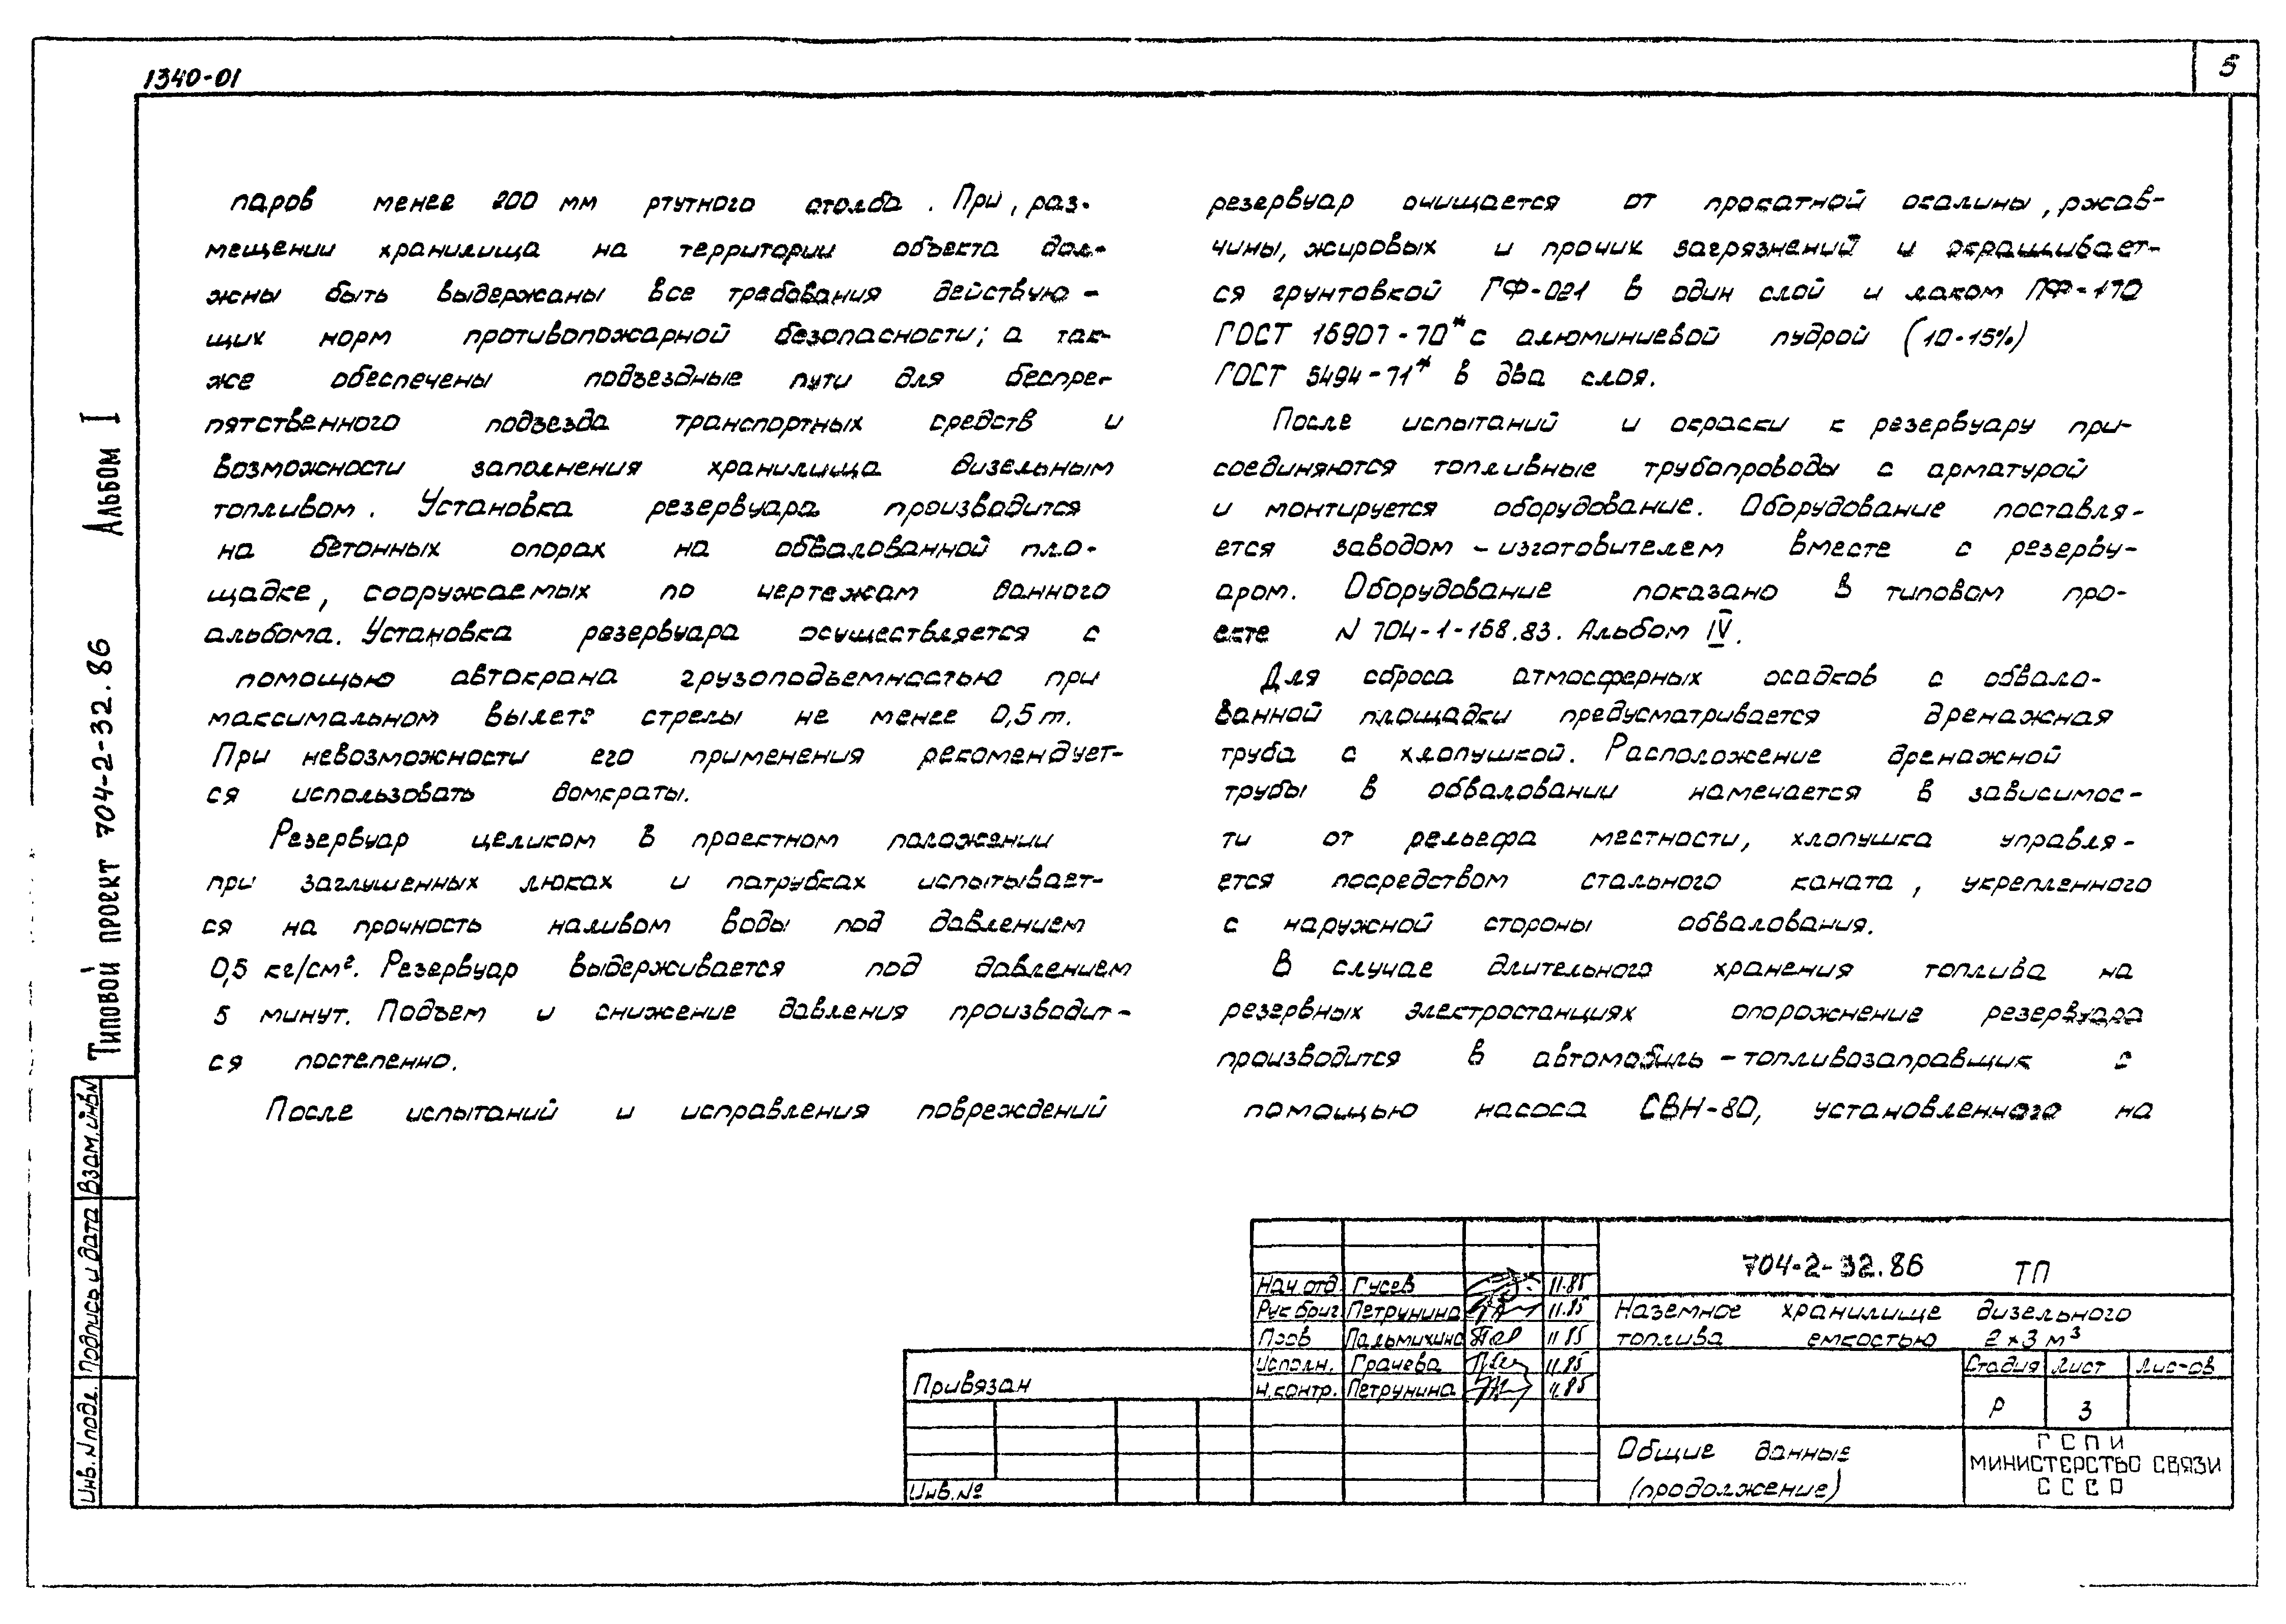 1340-01
5
паров менее 200 мм ртутного столба. При, раз-
мещении хранилища на территории объекта дол-
жны быть выдержаны все требования действую-
щих норм противопожарной безопасности; а так-
же обеспечены подъездные пути для беспре-
пятственного подъезда транспортных средств и
возможности заполнения хранилища дизельным
топливом. Установка резервуара производится
на бетонных опорах на обвалованной пло-
щадке, сооружаемых по чертежам данного
альбома. Установка резервуара осуществляется с
помощью автокрана грузоподъемностью при
максимальном вылете стрелы не менее 0,5 т.
При невозможности его применения рекомендует-
ся использовать домкраты.
Резервуар целиком в проектном положении
при заглушенных люках и патрубках испытывает-
ся на прочность наливом воды под давлением
0,5 кг/см². Резервуар выдерживается под давлением
5 минут. Подъем и снижение давления производит-
ся постепенно.
После испытаний и исправления повреждений
резервуар очищается от прокатной окалины, ржав-
чины, жировых и прочих загрязнений и окрашивает-
ся грунтовкой ГФ-021 в один слой и лаком ПФ-170
ГОСТ 15907-70* с алюминиевой пудрой (10-15%)
ГОСТ 5494-71* в два слоя.
После испытаний и окраски к резервуару при-
соединяются топливные трубопроводы с арматурой
и монтируется оборудование. Оборудование поставля-
ется заводом-изготовителем вместе с резерву-
аром. Оборудование показано в типовом про-
екте N 704-1-158.83. Альбом IV.
Для сброса атмосферных осадков с обвало-
ванной площадки предусматривается дренажная
труба с хлопушкой. Расположение дренажной
трубы в обваловании намечается в зависимос-
ти от рельефа местности, хлопушка управля-
ется посредством стального каната, укрепленного
с наружной стороны обвалования.
В случае длительного хранения топлива на
резервных электростанциях опорожнение резервуара
производится в автомобиль-топливозаправщик с
помощью насоса СВН-80, установленного на
Типовой проект 704-2-32.86 Альбом I
Инв. N подл. Подпись и дата Взам. инв N
Привязан
Инв. №
Нач отд. Гусев 11.85
Рук бриг. Петрунина 11.85
Пров Пальмихина 11 85
Исполн. Грачева 11.85
Н.контр. Петрунина 11.85
704-2-32.86 ТП
Наземное хранилище дизельного
топлива емкостью 2×3 м³
Стадия Лист Листов
Р 3
Общие данные
(продолжение)
ГСПИ
МИНИСТЕРСТВО СВЯЗИ
СССР